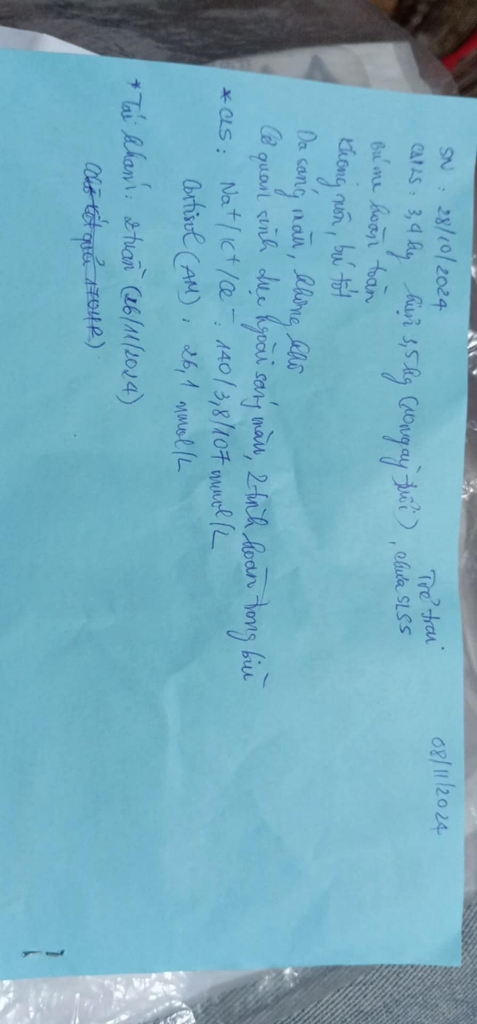 08/11/2024
Trẻ trai
SN : 28/10/2024
CNLS : 3,4 kg hiện 3,5 kg (10 ngày tuổi), chưa SLSS
Bú mẹ hoàn toàn
Không nôn, bú tốt
Da sáng màu, không khô
Cơ quan sinh dục ngoài sáng màu, 2 tinh hoàn trong bìu
* CLS : Na+/K+/Cl- : 140/3,8/107 mmol/L
Cortisol (AM) : 26,1 nmol/L
* Tái khám : 2 tuần (26/11/2024)
kết quả 17OHP)